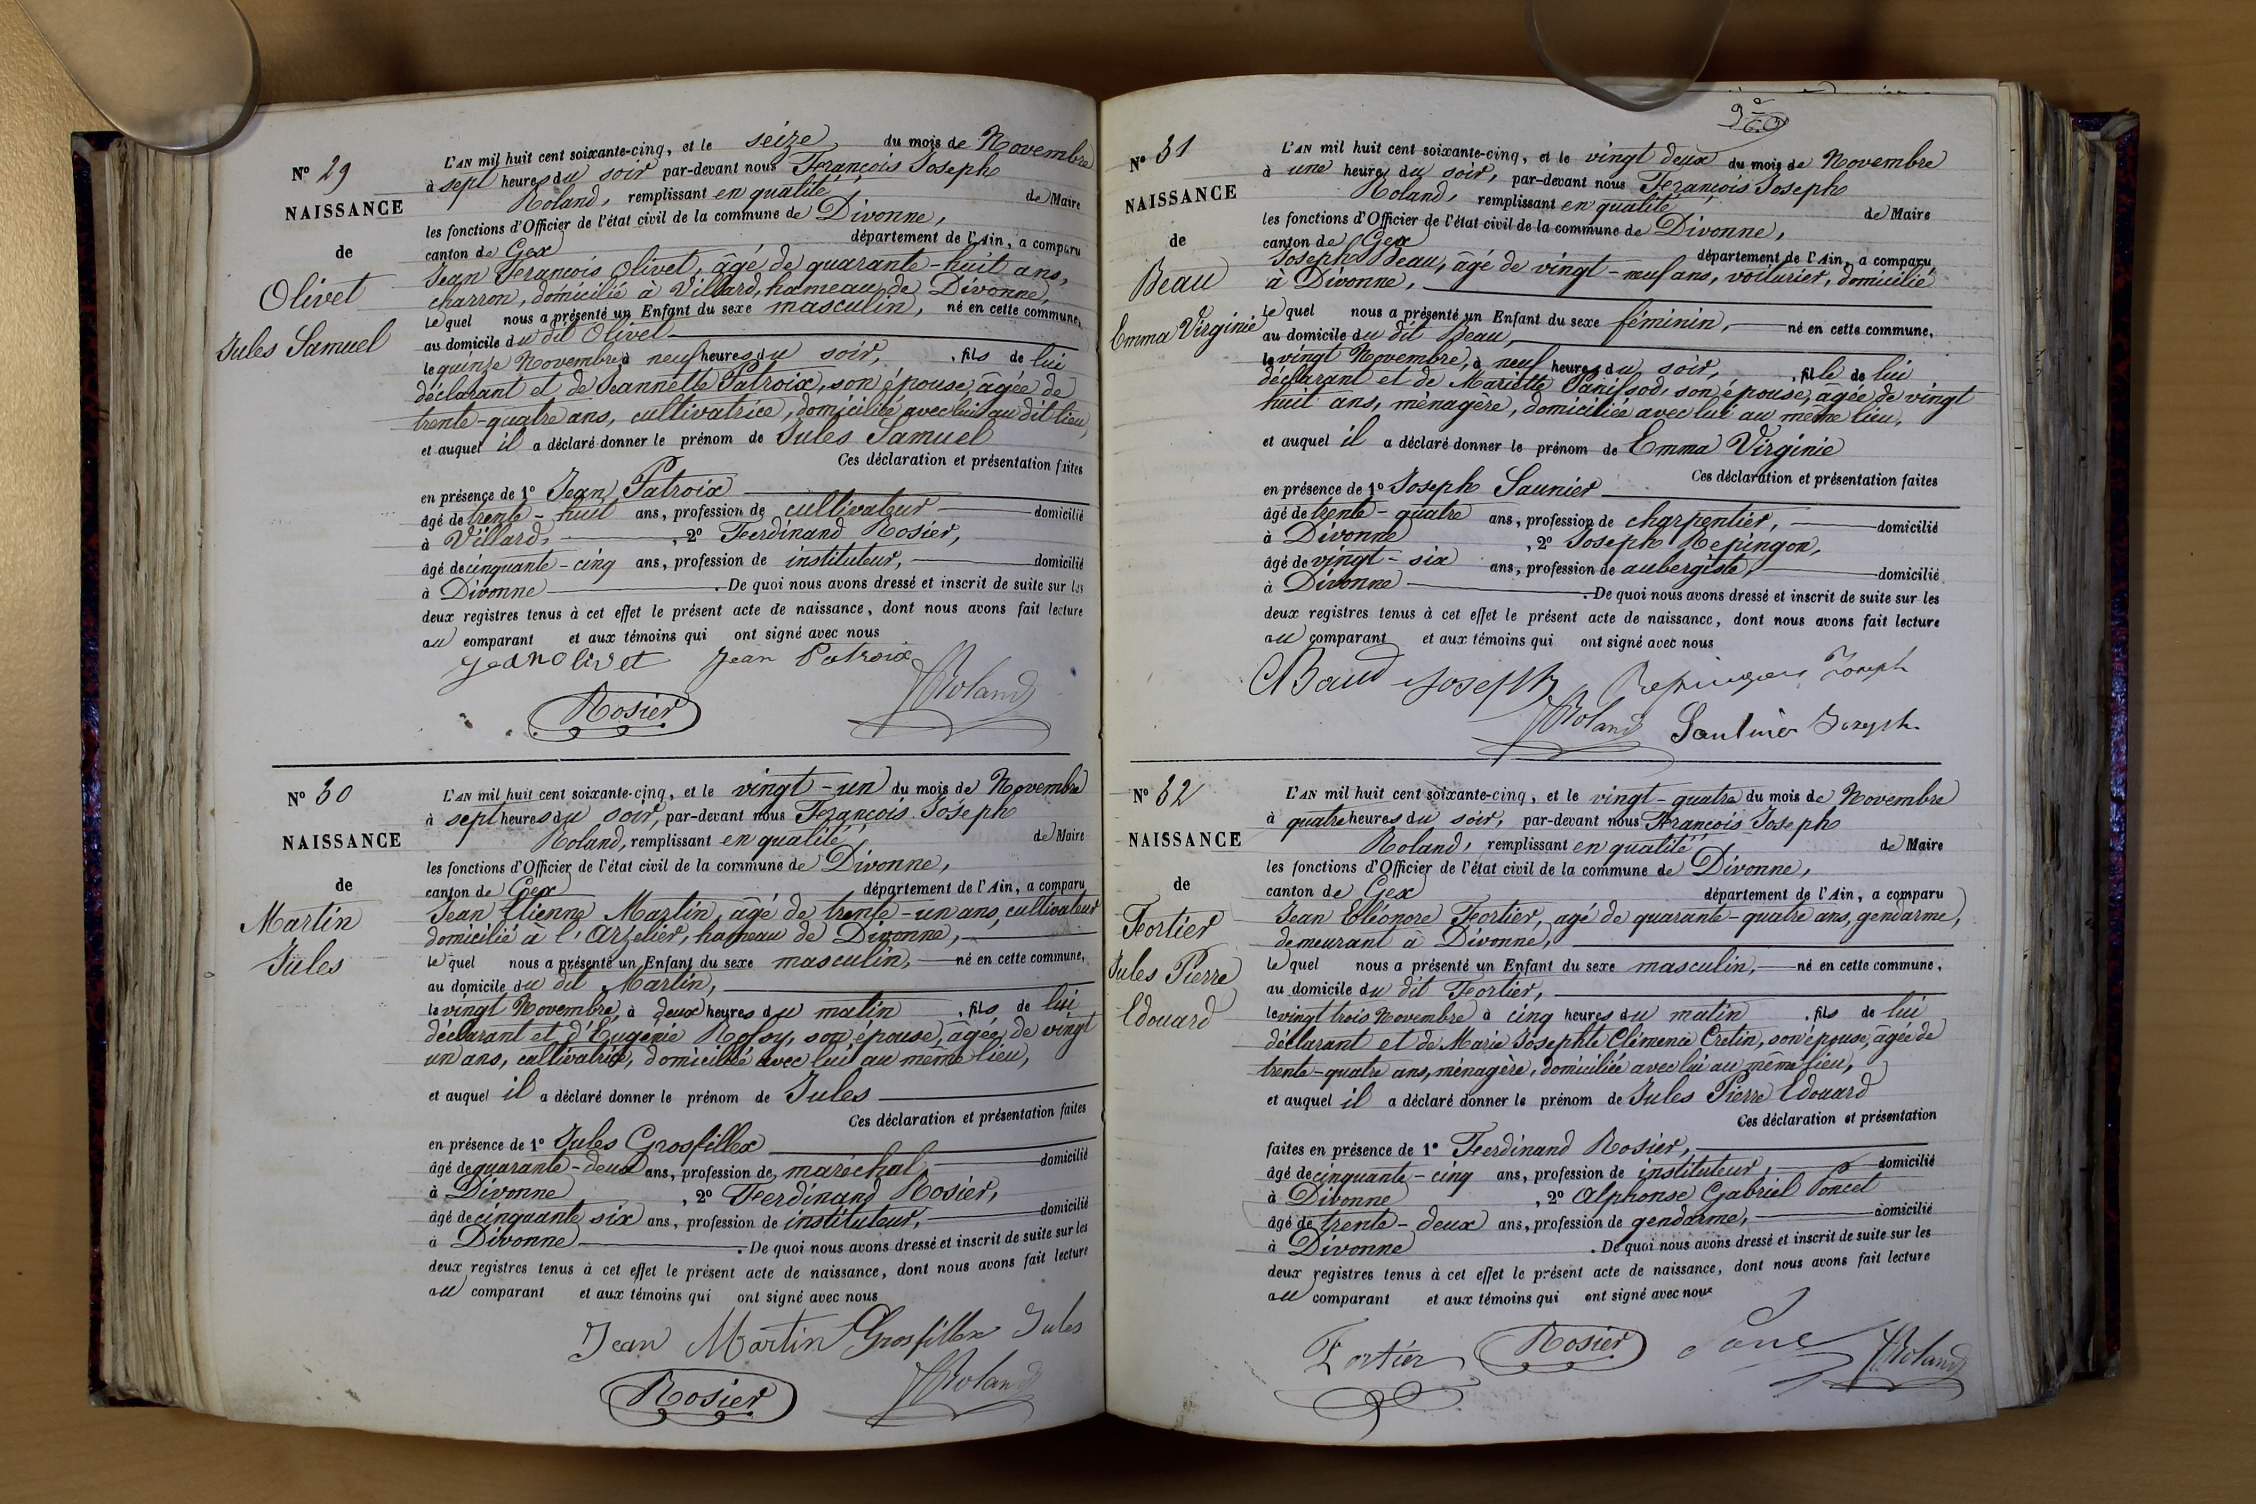 N° 29
NAISSANCE
de
Olivet
Jules Samuel
L'AN mil huit cent soixante-cinq, et le seize du mois de Novembre
à sept heures du soir par-devant nous François Joseph
Roland, remplissant en qualité de Maire
les fonctions d'Officier de l'état civil de la commune de Divonne,
canton de Gex département de l'Ain, a comparu
Jean François Olivet, âgé de quarante-huit ans,
charron, domicilié à Villard, hameau de Divonne,
lequel nous a présenté un Enfant du sexe masculin, né en cette commune,
au domicile du dit Olivet
le quinze Novembre à neuf heures du soir, fils de lui
déclarant et de Jeannette Patroix, son épouse, âgée de
trente-quatre ans, cultivatrice, domiciliée avec lui au dit lieu,
et auquel il a déclaré donner le prénom de Jules Samuel
Ces déclaration et présentation faites
en présence de 1° Jean Patroix
âgé de trente-huit ans, profession de cultivateur domicilié
à Villard, , 2° Ferdinand Rosier,
âgé de cinquante-cinq ans, profession de instituteur, domicilié
à Divonne . De quoi nous avons dressé et inscrit de suite sur les
deux registres tenus à cet effet le présent acte de naissance, dont nous avons fait lecture
au comparant et aux témoins qui ont signé avec nous
Jean Olivet Jean Patroix
Rosier JRoland
N° 30
NAISSANCE
de
Martin
Jules
L'AN mil huit cent soixante-cinq, et le vingt-un du mois de Novembre
à sept heures du soir, par-devant nous François Joseph
Roland, remplissant en qualité de Maire
les fonctions d'Officier de l'état civil de la commune de Divonne,
canton de Gex département de l'Ain, a comparu
Jean Etienne Martin, âgé de trente-un ans, cultivateur
domicilié à l'Arzelier, hameau de Divonne,
lequel nous a présenté un Enfant du sexe masculin, né en cette commune,
au domicile du dit Martin,
le vingt Novembre, à deux heures du matin , fils de lui
déclarant et d'Eugénie son épouse, âgée de vingt
un ans, cultivatrice, domiciliée avec lui au même lieu,
et auquel il a déclaré donner le prénom de Jules
Ces déclaration et présentation faites
en présence de 1° Jules Grosfillex
âgé de quarante-deux ans, profession de maréchal domicilié
à Divonne , 2° Ferdinand Rosier,
âgé de cinquante six ans, profession de instituteur, domicilié
à Divonne . De quoi nous avons dressé et inscrit de suite sur les
deux registres tenus à cet effet le présent acte de naissance, dont nous avons fait lecture
au comparant et aux témoins qui ont signé avec nous
Jean Martin Grosfillex Jules
Rosier JRoland
N° 31
NAISSANCE
de
Beau
Emma Virginie
L'AN mil huit cent soixante-cinq, et le vingt deux du mois de Novembre
à une heure du soir, par-devant nous François Joseph
Roland, remplissant en qualité de Maire
les fonctions d'Officier de l'état civil de la commune de Divonne,
canton de Gex département de l'Ain, a comparu
Joseph Beau, âgé de vingt-neuf ans, voiturier, domicilié
à Divonne,
lequel nous a présenté un Enfant du sexe féminin, né en cette commune.
au domicile du dit Beau,
le vingt Novembre, à neuf heures du soir, , fille de lui
déclarant et de Mariette Panissod, son épouse, âgée de vingt
huit ans, ménagère, domiciliée avec lui au même lieu,
et auquel il a déclaré donner le prénom de Emma Virginie
Ces déclaration et présentation faites
en présence de 1° Joseph Saunier
âgé de trente-quatre ans, profession de charpentier, domicilié
à Divonne , 2° Joseph Repingon,
âgé de vingt-six ans, profession de aubergiste, domicilié
à Divonne . De quoi nous avons dressé et inscrit de suite sur les
deux registres tenus à cet effet le présent acte de naissance, dont nous avons fait lecture
au comparant et aux témoins qui ont signé avec nous
Baud joseph Repingon Joseph
JRoland Saulnier Joseph
N° 32
NAISSANCE
de
Fortier
Jules Pierre
Edouard
L'AN mil huit cent soixante-cinq, et le vingt-quatre du mois de Novembre
à quatre heures du soir, par-devant nous François Joseph
Roland, remplissant en qualité de Maire
les fonctions d'Officier de l'état civil de la commune de Divonne,
canton de Gex département de l'Ain, a comparu
Jean Eléonore Fortier, agé de quarante-quatre ans, gendarme,
demeurant à Divonne,
lequel nous a présenté un Enfant du sexe masculin, né en cette commune,
au domicile du dit Fortier,
le vingt trois Novembre à cinq heures du matin , fils de lui
déclarant et de Marie Josephte Clémence Cretin, son épouse, âgée de
trente-quatre ans, ménagère, domiciliée avec lui au même lieu,
et auquel il a déclaré donner le prénom de Jules Pierre Edouard
Ces déclaration et présentation
faites en présence de 1° Ferdinand Rosier,
âgé de cinquante-cinq ans, profession de instituteur, domicilié
à Divonne , 2° Alphonse Gabriel Poncet
âgé de trente-deux ans, profession de gendarme, domicilié
à Divonne . De quoi nous avons dressé et inscrit de suite sur les
deux registres tenus à cet effet le présent acte de naissance, dont nous avons fait lecture
au comparant et aux témoins qui ont signé avec nous
Fortier Rosier JRoland